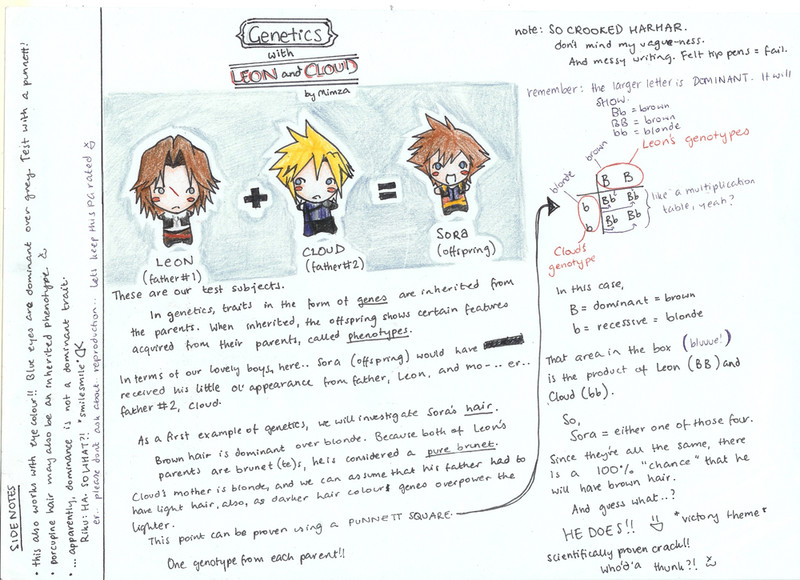 Genetics
with
LEON and CLOUD
by Mimza
LEON
(father #1)
CLOUD
(father #2)
SORA
(offspring)
These are our test subjects.
In genetics, traits in the form of genes are inherited from
the parents. When inherited, the offspring shows certain features
acquired from their parents, called phenotypes.
In terms of our lovely boys, here.. Sora (offspring) would have
received his little ol' appearance from father, Leon, and mo-... er..
father #2, Cloud.
As a first example of genetics, we will investigate Sora's hair.
Brown hair is dominant over blonde. Because both of Leon's
parents are brunet(te)s, he is considered a pure brunet.
Cloud's mother is blonde, and we can assume that his father had to
have light hair, also, as darker hair colours genes overpower the
lighter.
This point can be proven using a PUNNETT SQUARE.
One genotype from each parent!!
note: SO CROOKED HARHAR.
don't mind my vague-ness.
And messy writing. Felt tip pens = fail.
remember: the larger letter is DOMINANT. It will
SHOW.
Bb = brown
BB = brown
bb = blonde
Leon's genotypes
brown
blonde
B B
b Bb Bb
b Bb Bb
like a multiplication
table, yeah?
Cloud's
genotype
In this case,
B = dominant = brown
b = recessive = blonde
That area in the box (bluuue!)
is the product of Leon (BB) and
Cloud (bb).
So,
Sora = either one of those four.
Since they're all the same, there
is a 100% "chance" that he
will have brown hair.
And guess what..?
HE DOES!! *victory theme*
scientifically proven crack!!
Who'd'a thunk?!
SIDE NOTES
• this also works with eye colour!! Blue eyes are dominant over grey. Test with a punnett!
• porcupine hair may also be an inherited phenotype.
• ... apparently, dominance is not a dominant trait.
Riku: HA. SO WHAT?! *smilesmile*
er.. please dont ask about reproduction... Lets keep this PG rated